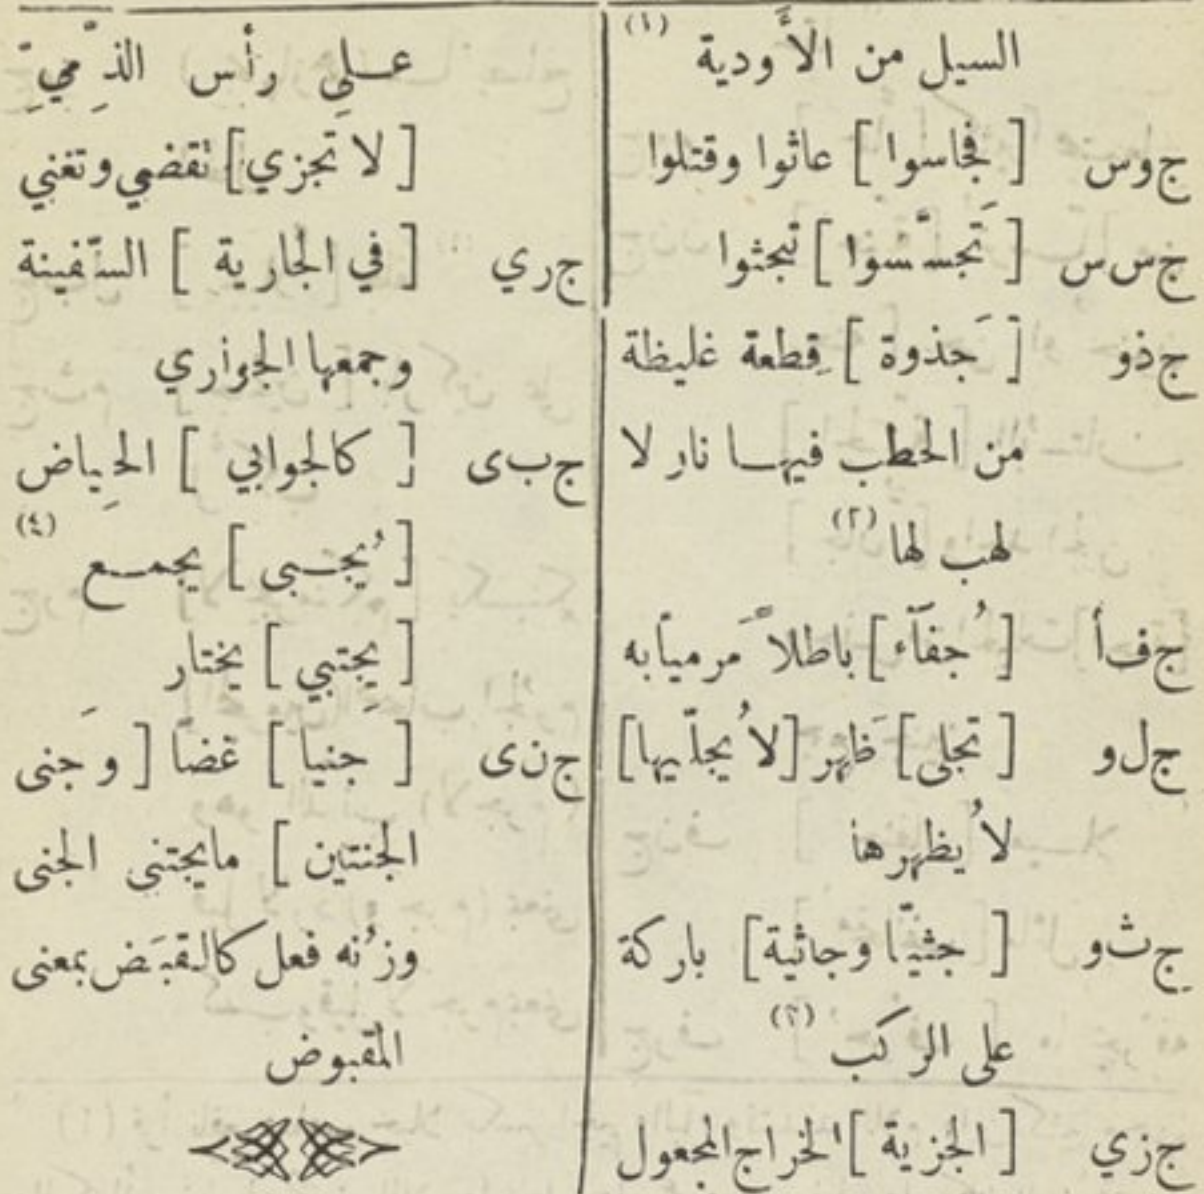 السيل من الأودية (١)
ج وس [ فجاسوا ] عاثوا وقتلوا
ج س س [ تَجسَّسوا ] تبحثوا
ج ذو [ جَذوة ] قِطعة غليظة
من الحطب فيها نار لا
لهب لها (٢)
ج ف أ [ جُفآء ] باطلاً مَرمياً به
ج ل و [ تجلى ] ظَهر [ لا يُجلّيها ]
لا يُظهرها
ج ث و [ جثيّا وجاثية ] باركة
على الركب (٣)
ج زي [ الجزية ] الخراج المجعول
على رأس الذِّمّيِّ
[ لا تجزي ] تقضي وتغني
ج ري [ في الجارية ] السّفينة
وجمعها الجواري
ج ب ى [ كالجوابي ] الحِياض
[ يُجبى ] يجمع (٤)
[ يجتبي ] يختار
ج ن ى [ جنيا ] غضاً [ وجَنى
الجنتين ] مايجتنى الجنى
وزنُه فعل كالقبَض بمعنى
المقبوض